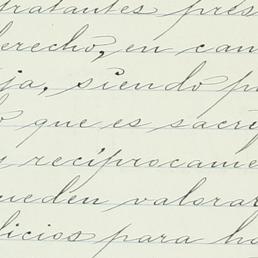 tratantes pres
derecho, en cam
ja, siendo p
o que es sacri
y recíprocame
ueden valorar
licios para ha